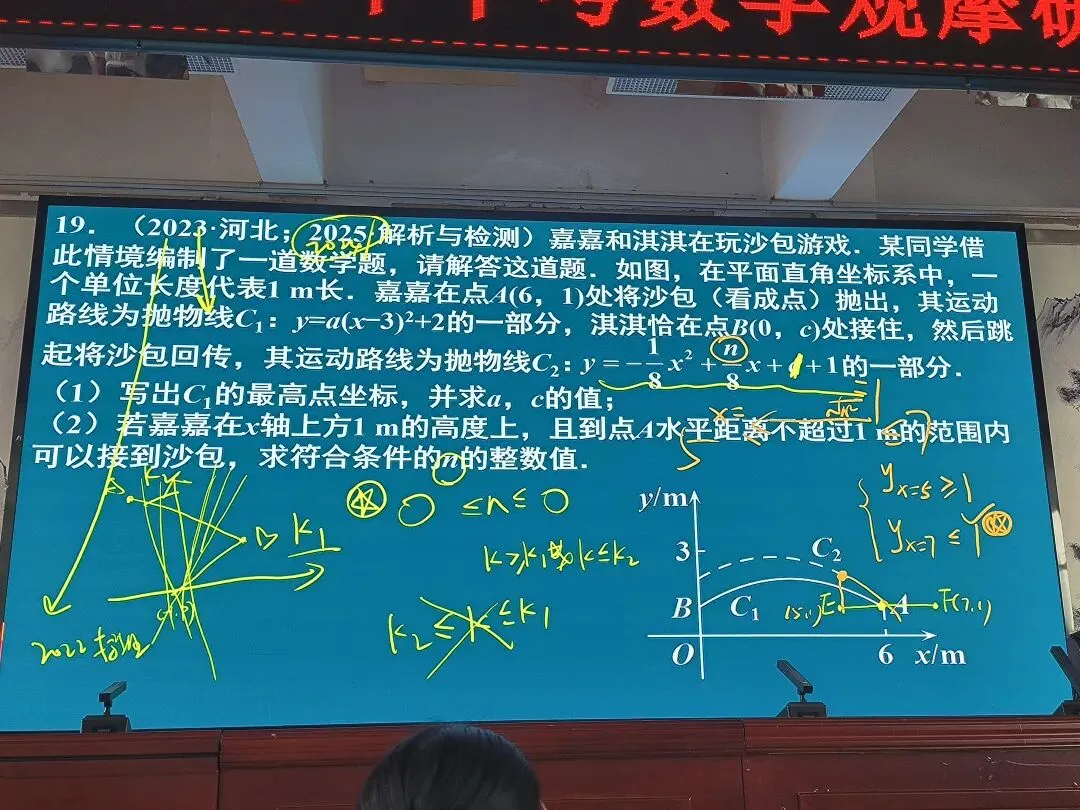 中考数学观摩研
19．（2023·河北；2025·解析与检测）嘉嘉和淇淇在玩沙包游戏．某同学借
此情境编制了一道数学题，请解答这道题．如图，在平面直角坐标系中，一
个单位长度代表1 m长．嘉嘉在点A(6，1)处将沙包（看成点）抛出，其运动
路线为抛物线C₁：y=a(x−3)²+2的一部分，淇淇恰在点B(0，c)处接住，然后跳
起将沙包回传，其运动路线为抛物线C₂：y=−1/8x²+n/8x+c+1的一部分．
（1）写出C₁的最高点坐标，并求a，c的值；
（2）若嘉嘉在x轴上方1 m的高度上，且到点A水平距离不超过1 m的范围内
可以接到沙包，求符合条件的n的整数值．
5 ≤ 7
≤n≤
K₁
K≥K₁或K≤K₂
K₂≤K≤K₁
2022
y/m
3
C₂
B
C₁
(5,1)E
A
F(7,1)
O
6
x/m
y x=5 ≥1
y x=7 ≤1